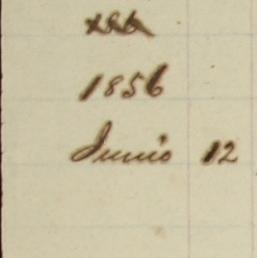 1856
Junio 12